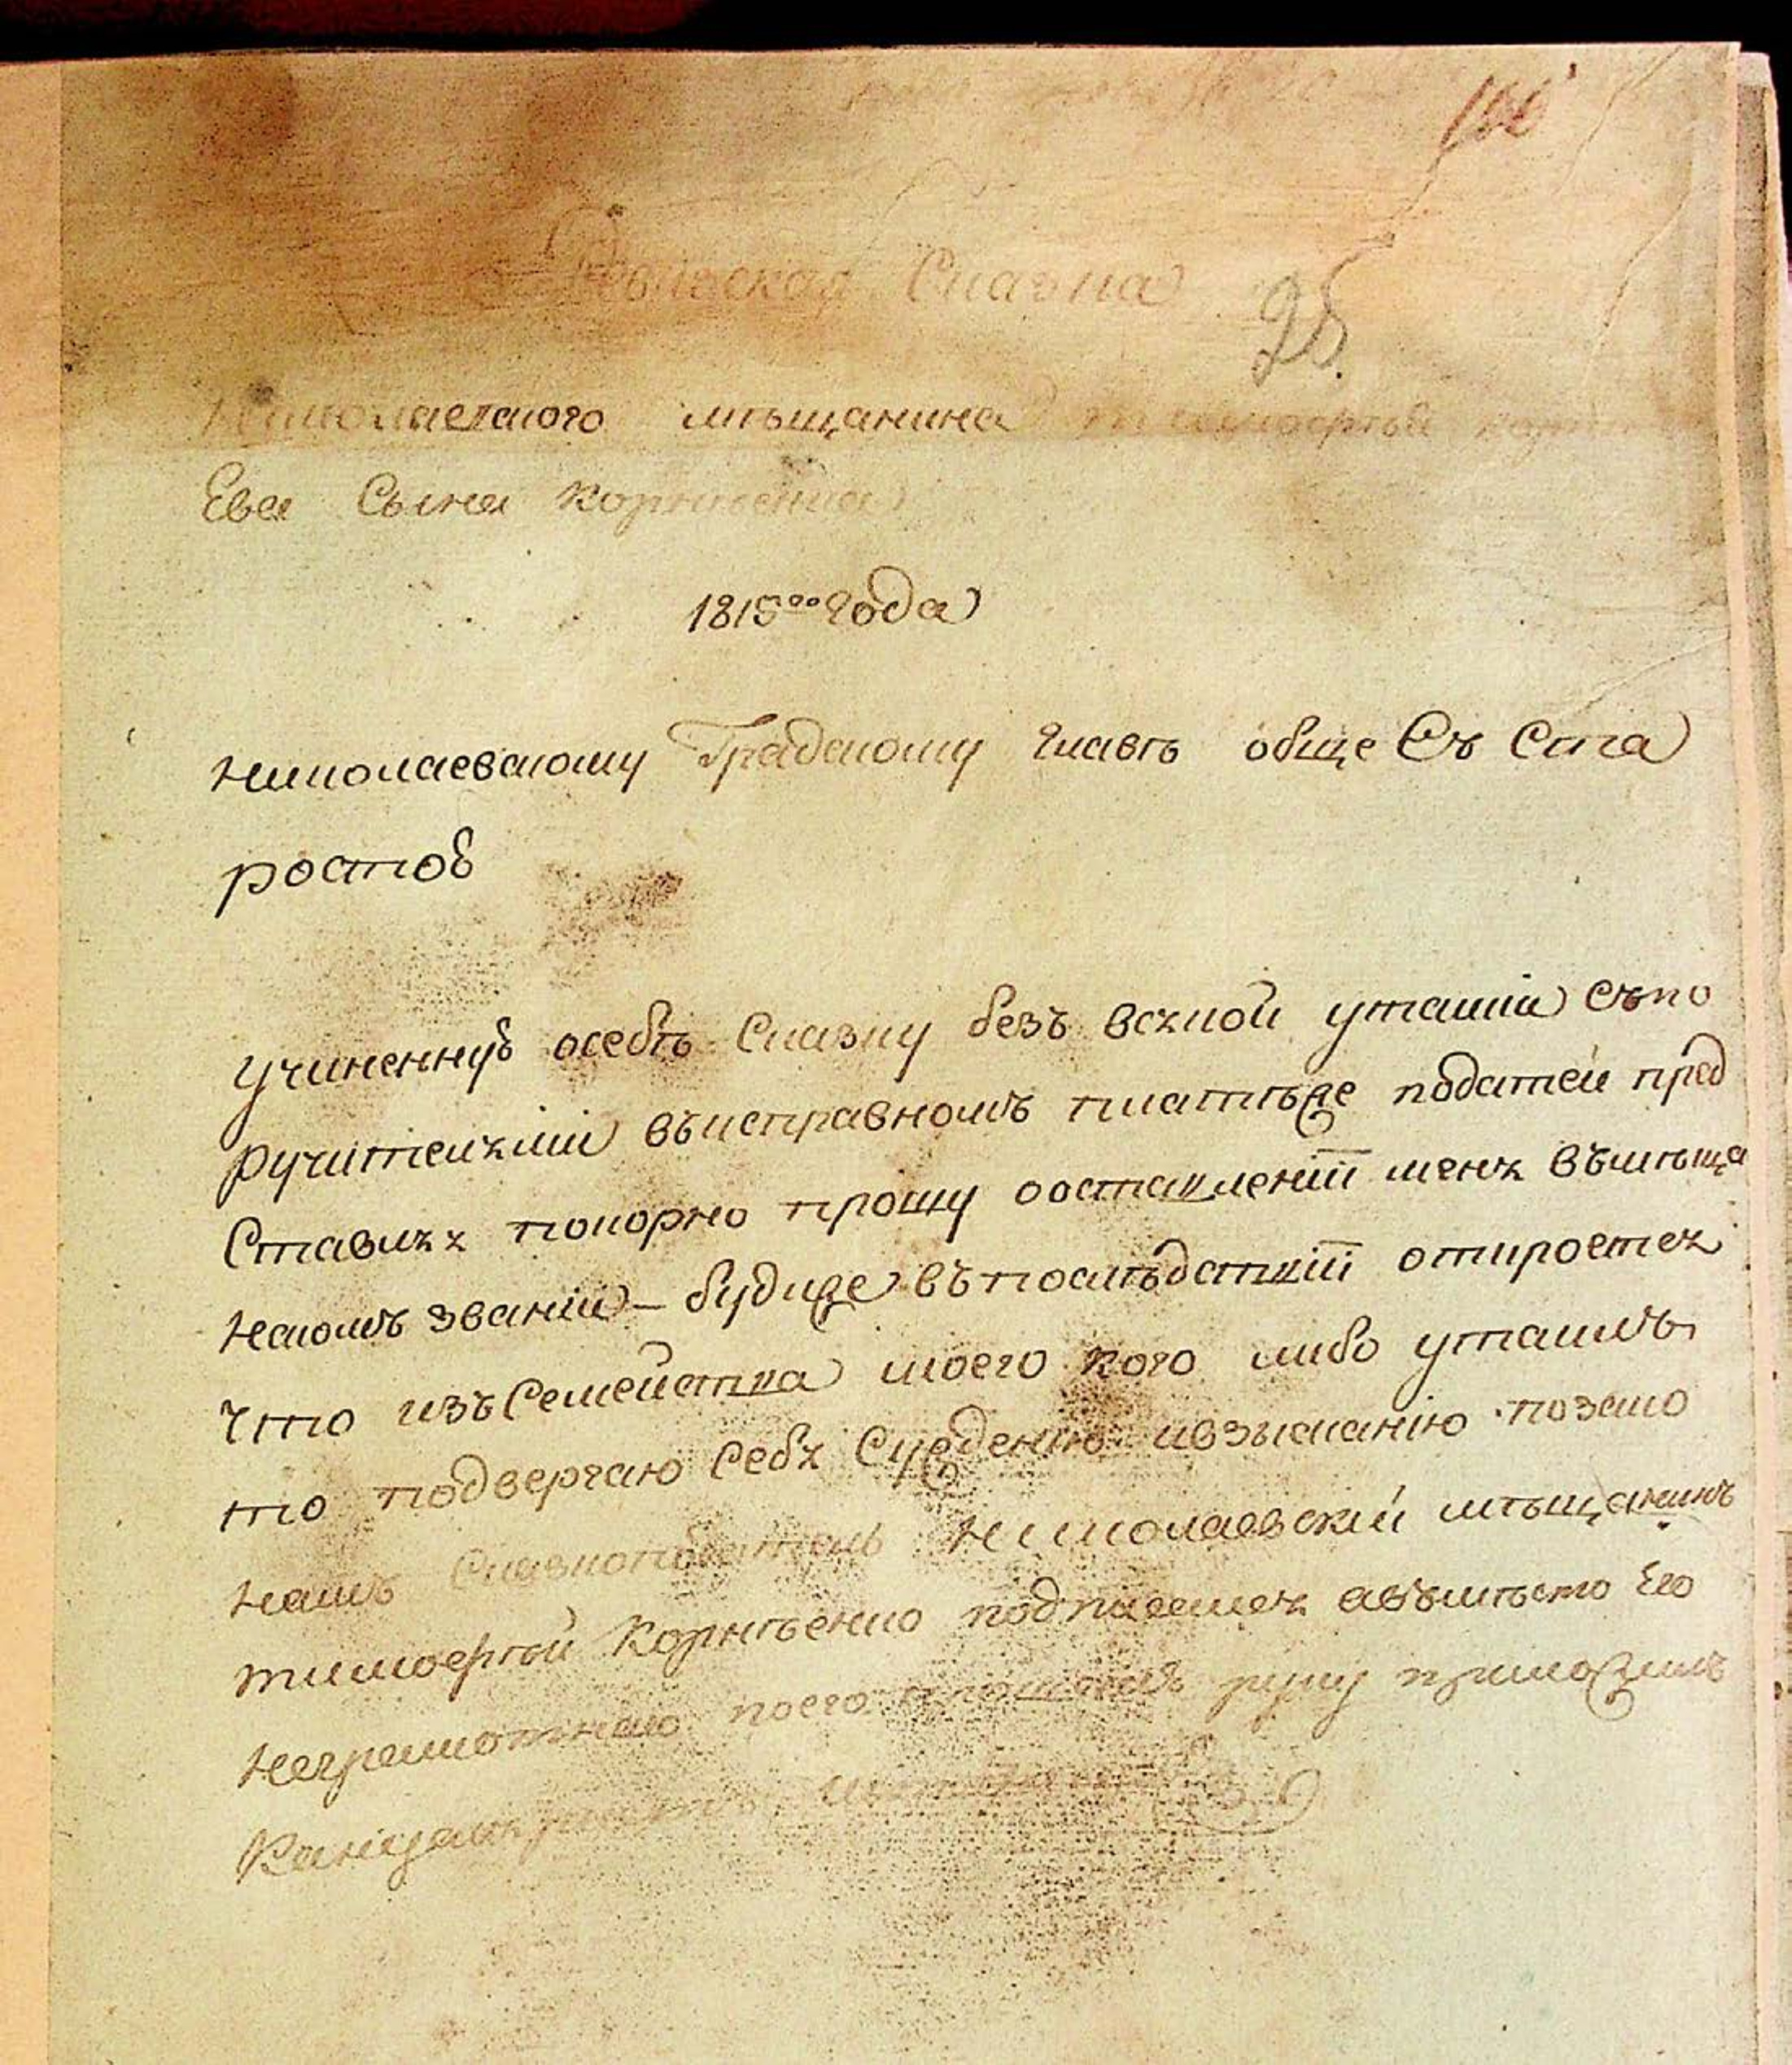 Ревизская Сказка
25.
Николаевского мѣщанина тимофѣй
Ева Сына Корнѣенка
1815го года
Николаевскому Градскому главѣ обще Съ Ста
ростов
Учиненную осебѣ Сказку безъ всякой утаики съпо
ручителями въисправномъ платѣже податей пред
Ставляя покорно прошуооставленіи меня въмѣща
нскомъ званіи – будиже въпослѣдствіи откроется
Что изъ Семейства моего кого либо утаилъ
то подвергаю Себя Сужденію ивзысканію позако
намъ Сказкоподатель Николаевскій мѣщанинъ
тимофѣй Корнѣенко подписался авъмѣсто Его
неграмотнаго поего прозбѣ руку приложилъ
Канцеляристъ